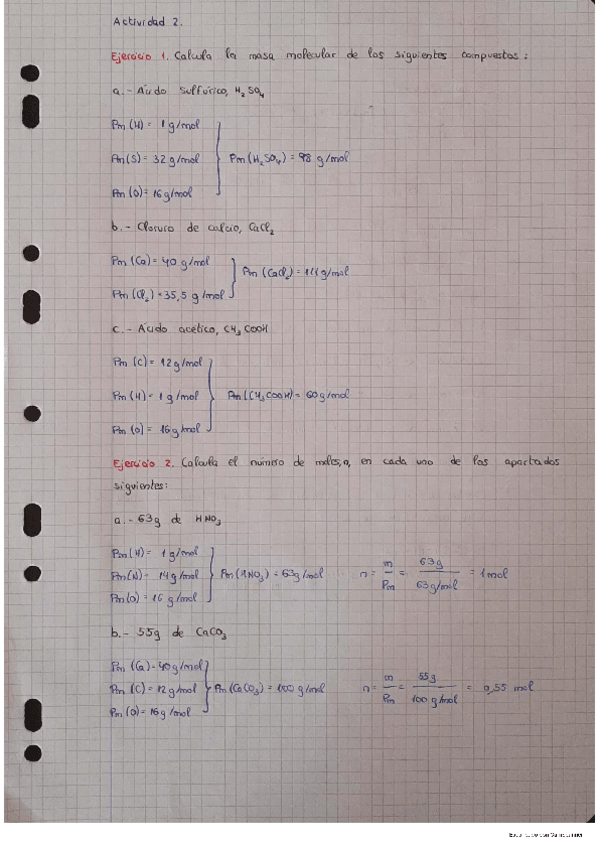 Actividad 2.
Ejercicio 1. Calcula la masa molecular de los siguientes compuestos:
a.- Ácido sulfúrico, H₂SO₄
Pm(H)= 1g/mol
Pm(S)= 32g/mol Pm(H₂SO₄)= 98 g/mol
Pm(O)= 16g/mol
b.- Cloruro de calcio, CaCl₂
Pm(Ca)= 40 g/mol
Pm(CaCl₂)= 111g/mol
Pm(Cl₂)=35,5 g/mol
c.- Ácido acético, CH₃COOH
Pm (C)= 12g/mol
Pm (H)= 1g/mol Pm(CH₃COOH)= 60g/mol
Pm (O)= 16g/mol
Ejercicio 2. Calcula el número de moles,n, en cada uno de los apartados
siguientes:
a.- 63g de HNO₃
Pm(H)= 1g/mol
Pm(N)= 14g/mol Pm(HNO₃)= 63g/mol n= m/Pm = 63g/63g/mol = 1mol
Pm(O)= 16g/mol
b.- 55g de CaCO₃
Pm (Ca)=40g/mol
Pm (C)=12g/mol Pm(CaCO₃)=100g/mol n= m/Pm = 55g/100g/mol = 0,55 mol
Pm(O)=16g/mol